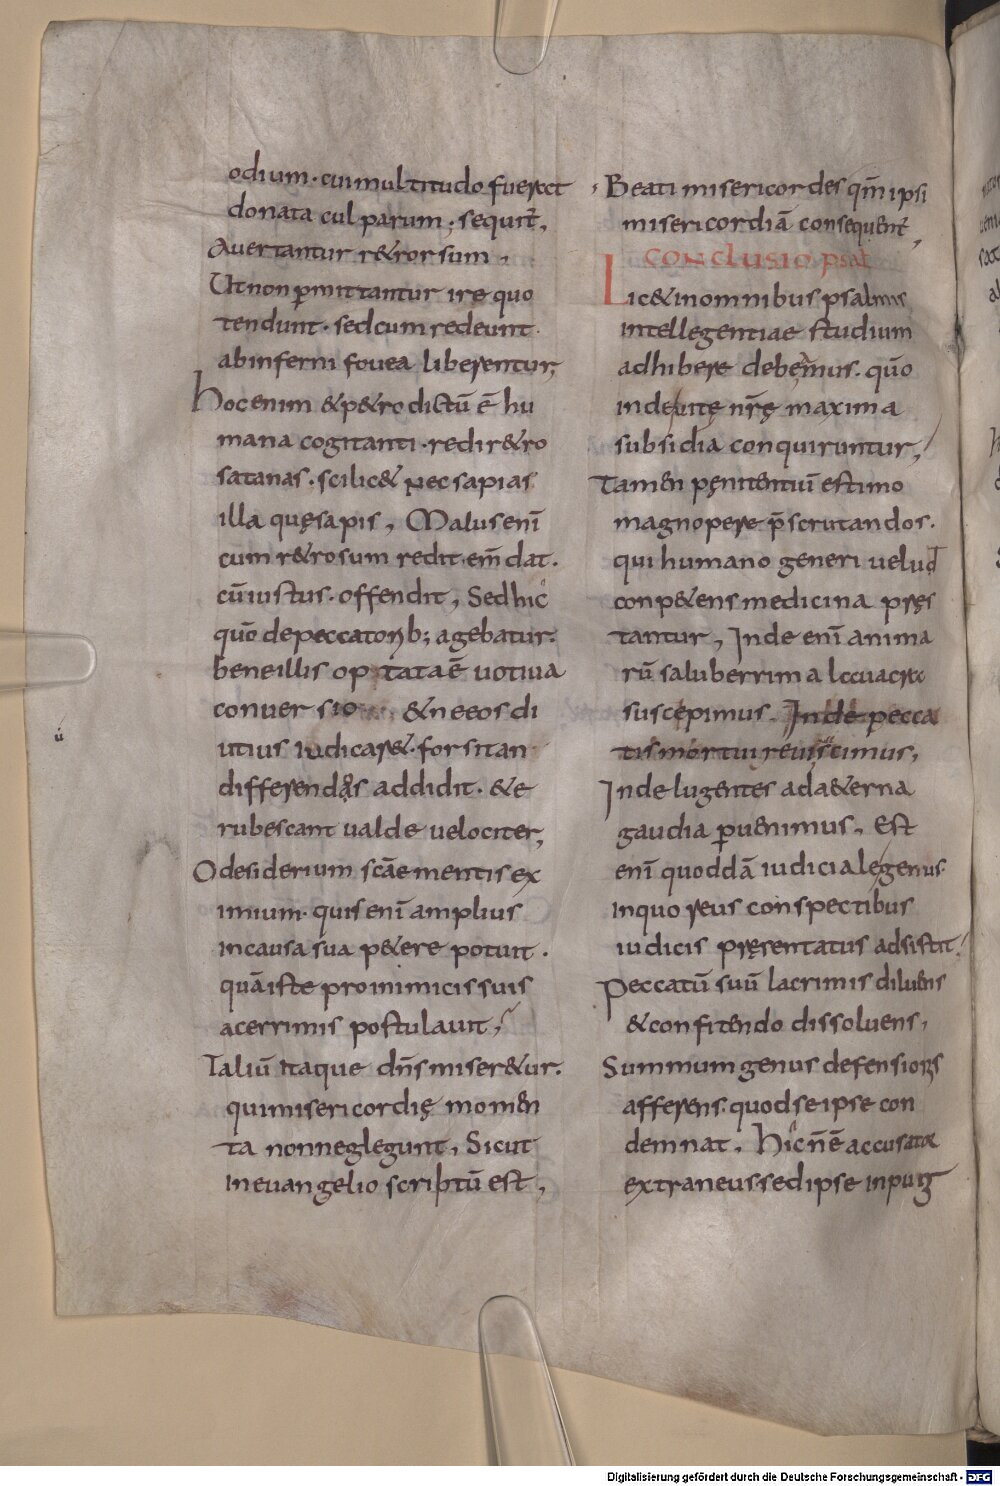 odium · cui multitudo fuerat
donata culparum ; sequit̄,
Auertantur r&rorsum ,
Ut non p̄mittantur ire quo
tendunt · sed cum redeunt
ab inferni fouea liberentur;
hoc enim & p&ro dictū ē hu
mana cogitanti · redi r&ro
satanas · scilic& nec sapias
illa quę sapis , Malus enī
cum r&rosum redit em̄dat .
cū iustus · offendit , Sed hic
quō de peccatorꝝ b; agebatur .
bene illis optata ē uotiua
conuersio & ne eos di
utius iudicar& · forsitan
differendos addidit · & e
rubescant ualde uelociter;
O desiderium scāe mentis ex
imium · quis enī amplius
in causa sua p&ere potuit .
quā iste pro inimicis suis
acerrimis postulauit ;
Taliū itaque dn̄s miser&ur .
qui misericordię momen
ta non neglegunt , Sicut
in euangelio scriptū est ,
ú
Beati misericordes qm̄ ipsi
misericordiā consequent̄ ,
CONCLUSIO psal
Lic& in omnibus psalmis
intellegentiae studium
adhibere debemus . quō
inde uitę nr̄ę maxima
subsidia conquiruntur ,
Tamen pęnitentiū estimo
magnopere p̄scrutandos .
qui humano generi uelud
conp&ens medicina pręs
tantur , Inde enī anima
rū saluberrima lauacra
suscepimus . Inde pecca
tis mortui reuiscimus ,
Inde lugentes ad a&erna
gaudia p̄uenimus , Est
enī quoddā iudiciale genus .
in quo reus conspectibus
iudicis pręsentatus adsistit .
Peccatū suū lacrimis diluens
& confitendo dissoluens ,
Summum genus defensionis
afferens · quod se ipse con
demnat , Hic n̄ ē accusator
extraneus sed ipse inpug
Digitalisierung gefördert durch die Deutsche Forschungsgemeinschaft - DFG